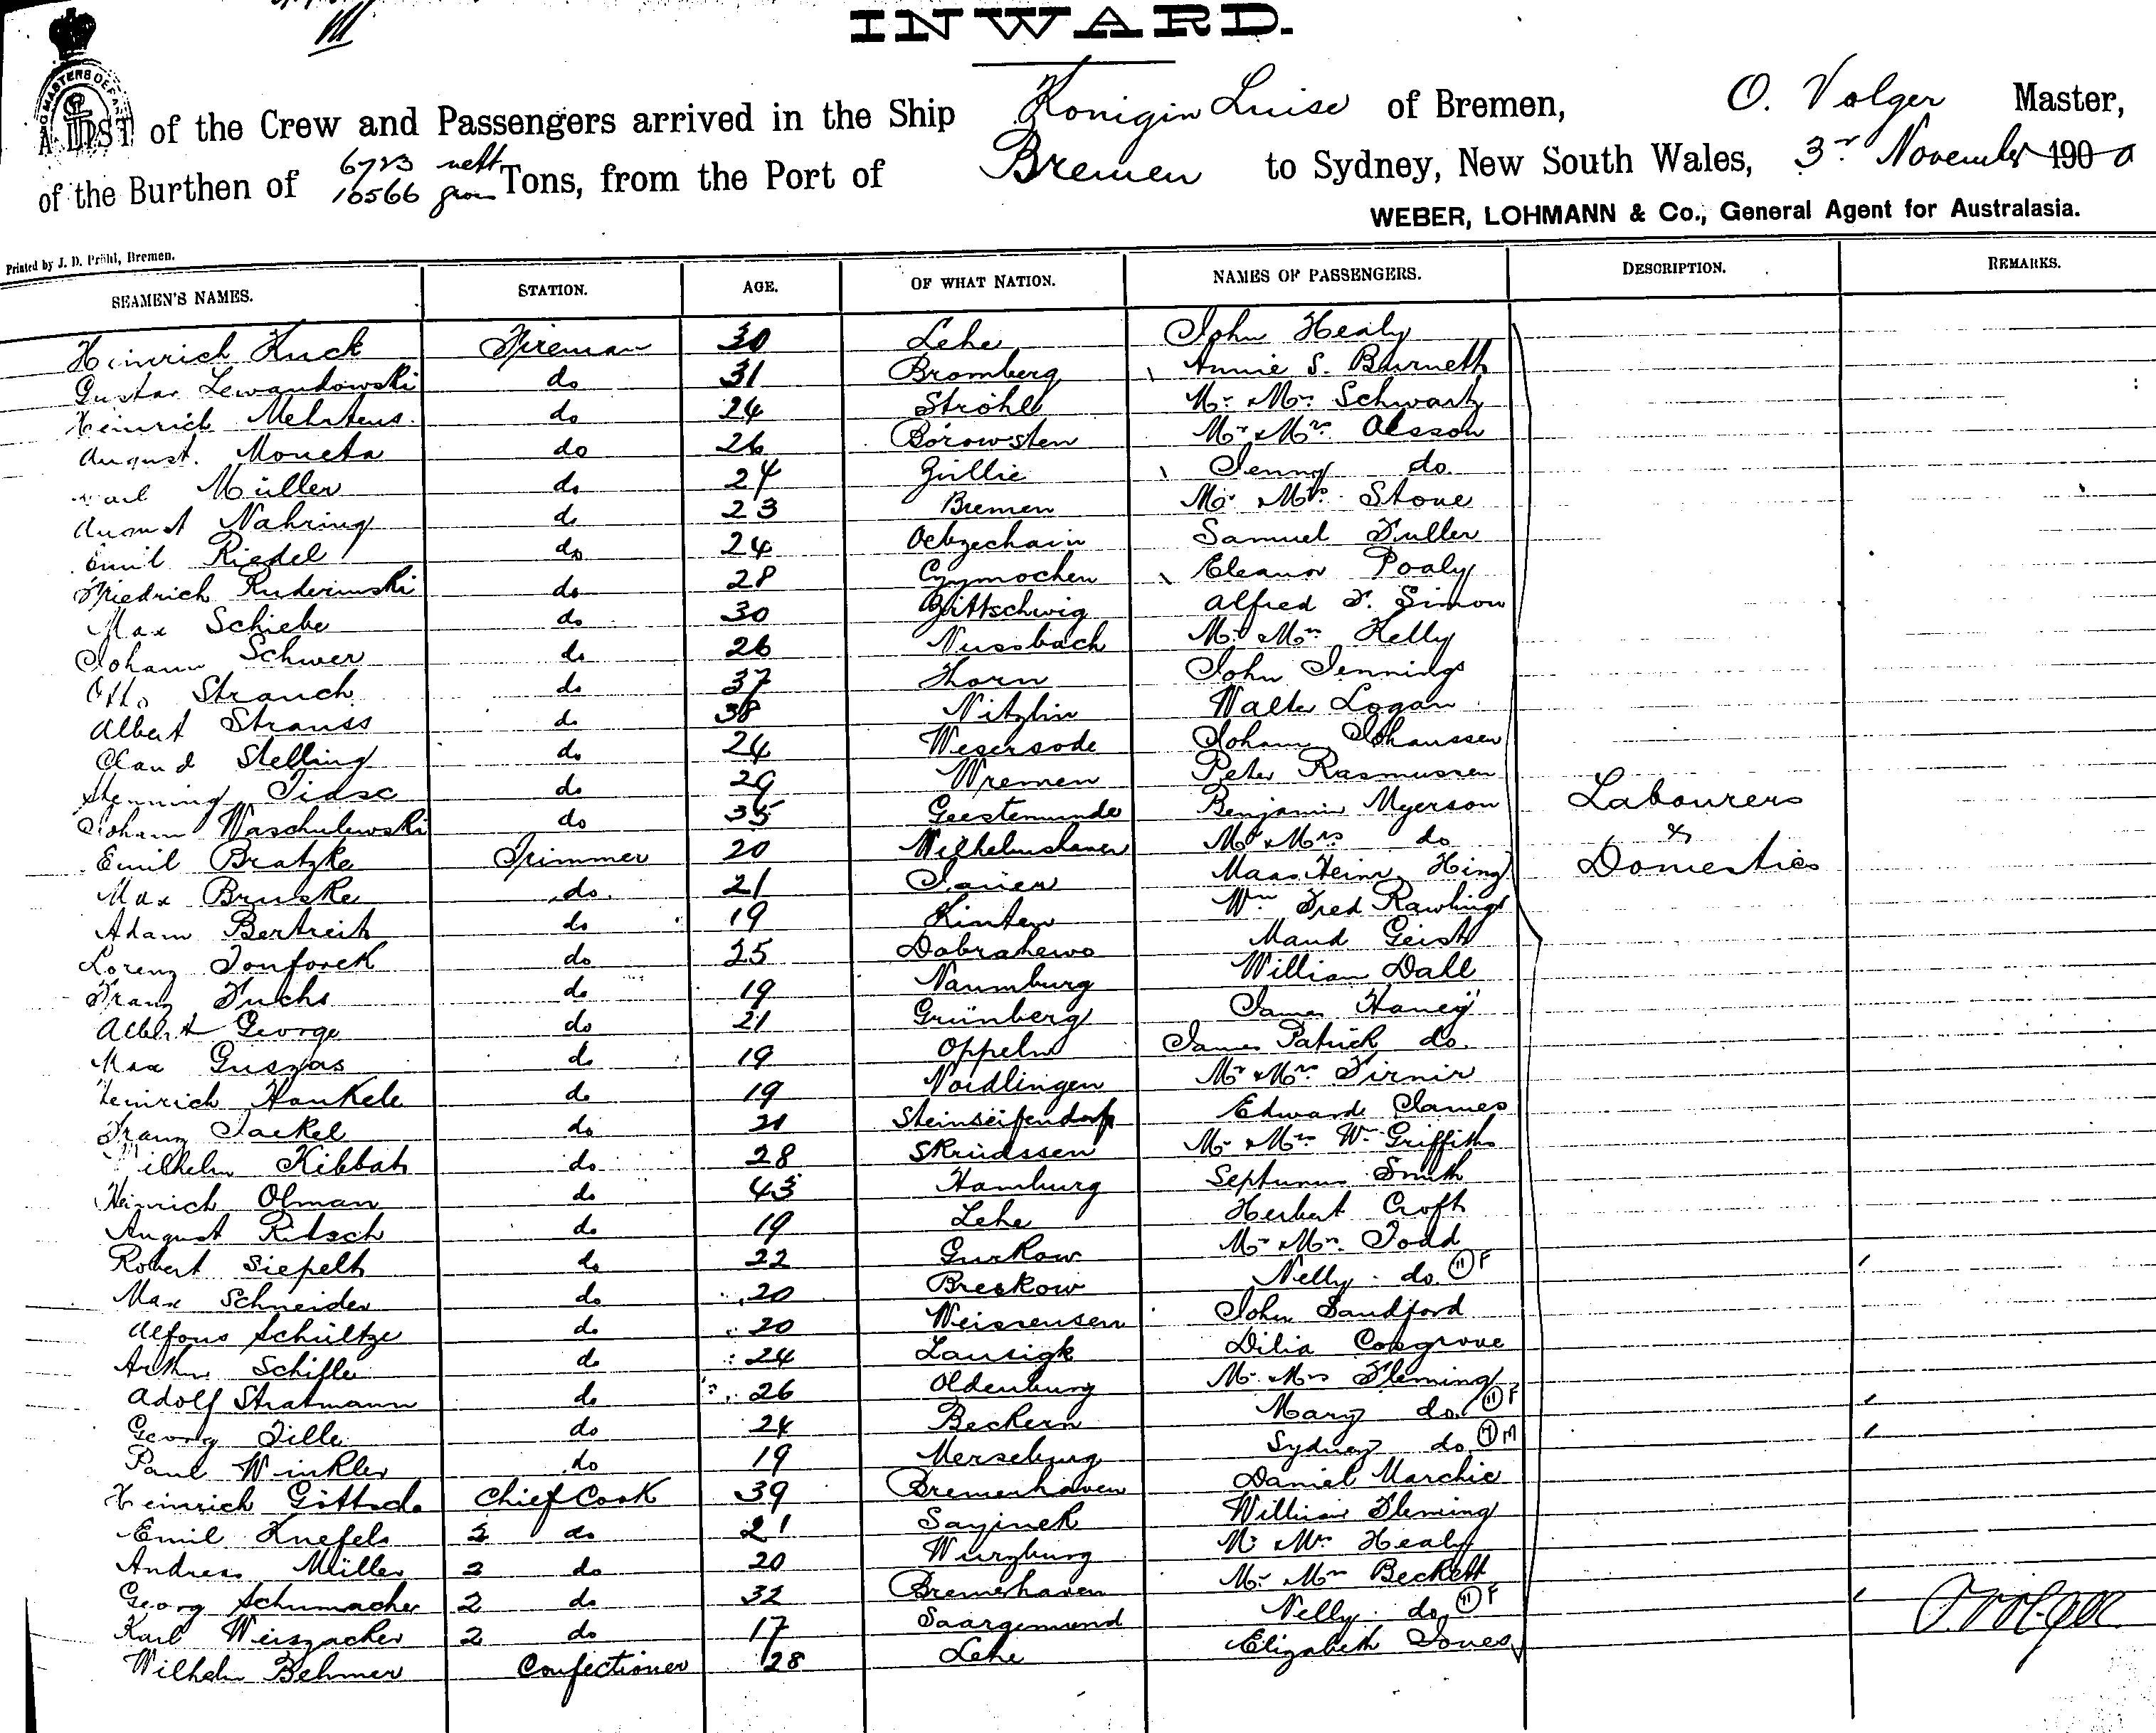 INWARD.
A LIST of the Crew and Passengers arrived in the Ship Konigin Luise of Bremen, O. Volger Master,
of the Burthen of 6723 nett 10566 gross Tons, from the Port of Bremen to Sydney, New South Wales, 3r November 1900
WEBER, LOHMANN & Co., General Agent for Australasia.
Printed by J. D. Pröhl, Bremen.
SEAMEN'S NAMES. STATION. AGE. OF WHAT NATION. NAMES OF PASSENGERS. DESCRIPTION. REMARKS.
Heinrich Kuck Fireman 30 Lehe John Healy
Gustav Lewandowski do 31 Bromberg Annie S. Burnett
Heinrich Mehrtens do 24 Ströhe Mr & Mrs Schwartz
August Moneta do 26 Borowsten Mr & Mrs Olsson
Müller do 24 Güllie Jenny do
August Nahring do 23 Bremen Mr & Mrs Stone
Emil Riedel do 24 Samuel Fuller
Friedrich Ruderimski do 28 Czymochen Eleanor Poaly
Max Schiebe do 30 Gittschwig Alfred F. Simon
Johann Schwer do 26 Nussbach Mr & Mrs Kelly
Otto Strauch do 37 Thorn John Jennings
Albert Strauss do 38 Nitzlin Walter Logan
Claud Stelling do 24 Wegersode Johann Johanssen
Henning Tiasc do 29 Wremen Peter Rasmussen
Johann Waschulewski do 35 Geestemunde Benjamin Myerson Labourers
Emil Bratzke Trimmer 20 Mr & Mrs do &
Max Bruske do 21 Jauer Hing Domestics
Adam Bertreit do 19 Kinten Wm Fred Rawlings
Lorenz do 25 Dobrahewo Maud Geist
Franz Fuchs do 19 Naumburg William Dall
Albert George do 21 Grünberg James Haney
Max Guszas do 19 Oppeln James Patrick do
Heinrich Hankele do 19 Nordlingen Mr & Mrs Firnir
Franz Jackel do 21 Steinseifendorf Edward James
Wilhelm Kibbat do 28 Skrudssen Mr & Mrs Wm Griffiths
Heinrich Olman do 43 Hamburg Septimus Smith
August Ritsch do 19 Lehe Herbert Croft
Robert Siepelt do 22 Gurkow Mr & Mrs Todd
Max Schneider do 20 Breskow Nelly do 11 F
Alfons Schültze do 20 Weissensen John Sandford
Arthur Schifler do 24 Lausigk Dilia Cosgrove
Adolf Stratmann do 26 Oldenburg Mr & Mrs Fleming
Georg Tille do 24 Beckern Mary do 11 F
Paul Winkler do 19 Merseburg Sydney do M
Heinrich Chief Cook 39 Bremerhaven Daniel Marchie
Emil Knefels 2 do 21 Sayinek William Fleming
Andreas Müller 2 do 20 Wurzburg Mr & Mrs Healy
Georg Schumacher 2 do 32 Bremerhaven Mr & Mrs Beckett
Karl Weiszacher 2 do 17 Saargemund Nelly do 11 F O. Volger
Wilhelm Behmer Confectioner 28 Lehe Elizabeth Jones